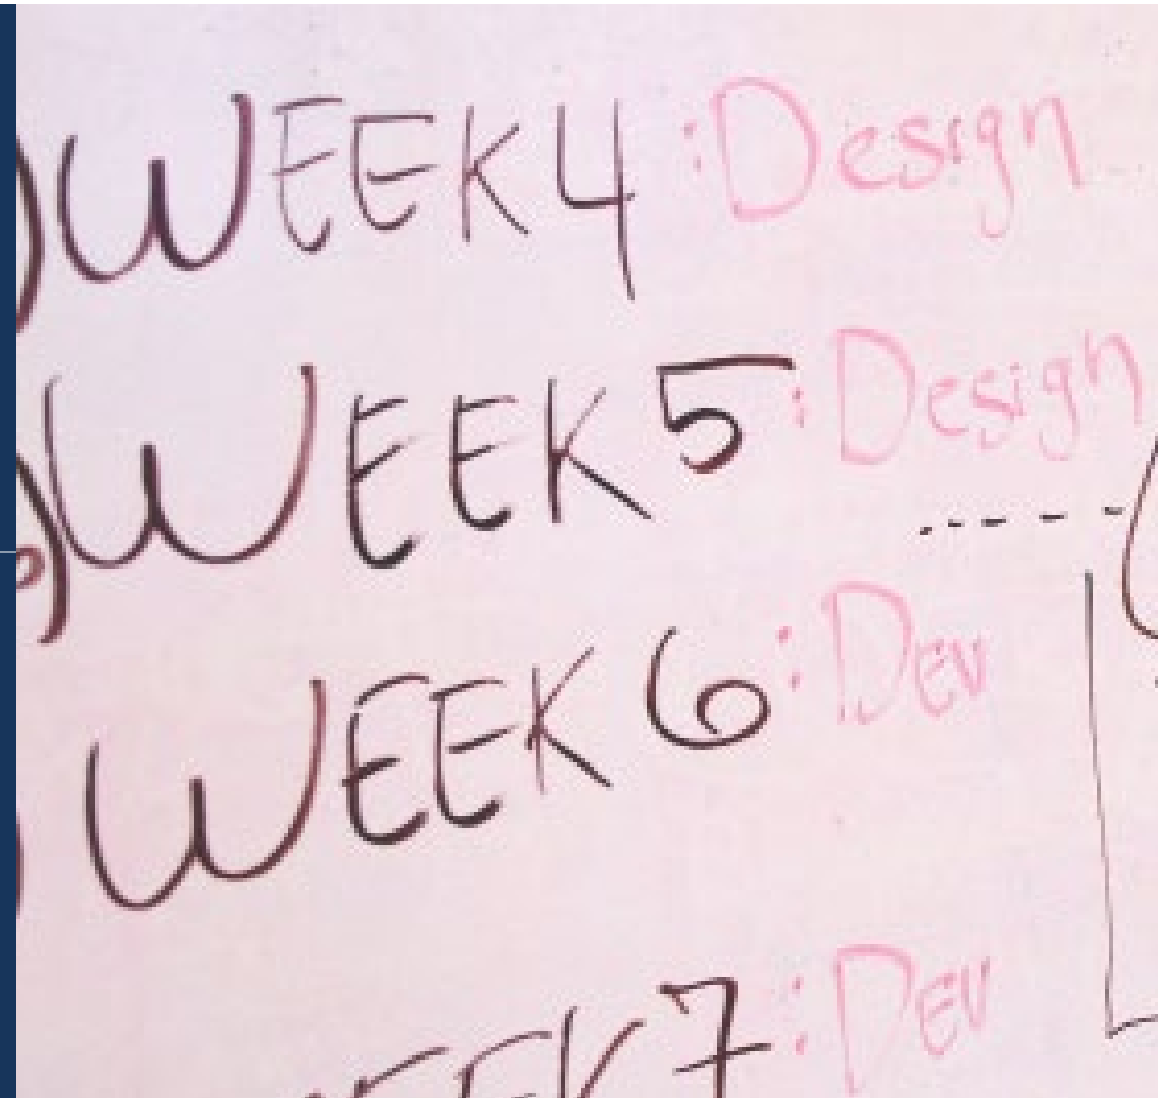 WEEK 4 : Design
WEEK 5 : Design
WEEK 6 : Dev
WEEK 7 : Dev